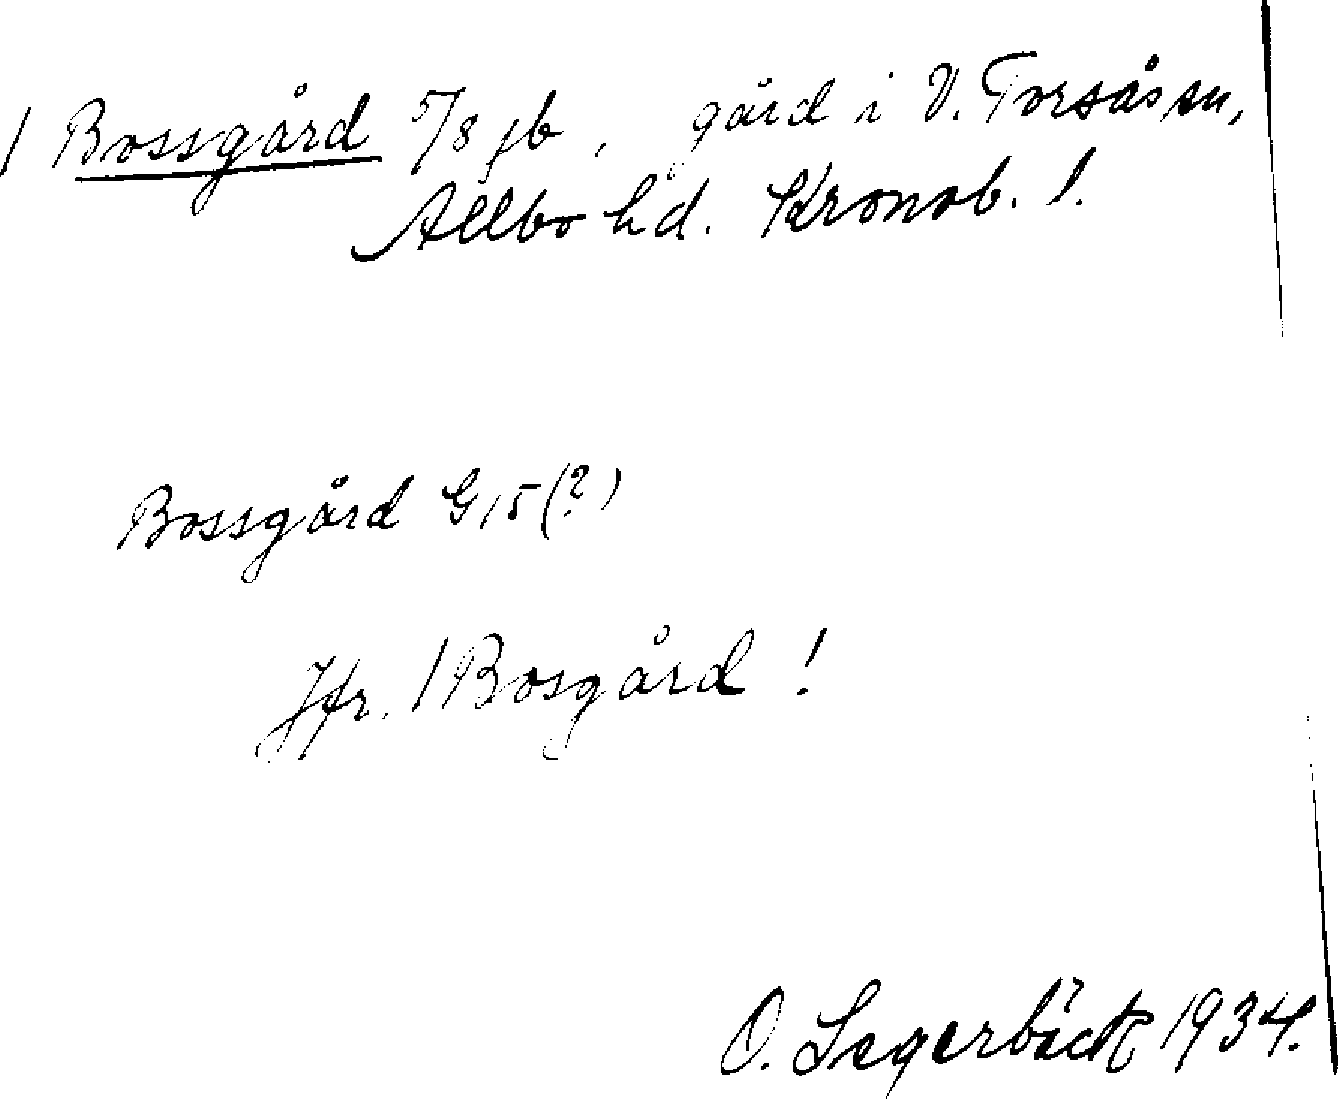 / Bossgård 5/8 jb, gård i V. Torsås sn,
Allbo hd. Kronob. l.
Bossgård G 15 (?)
Jfr. / Bosgård !
O. Segerbäck 1934.